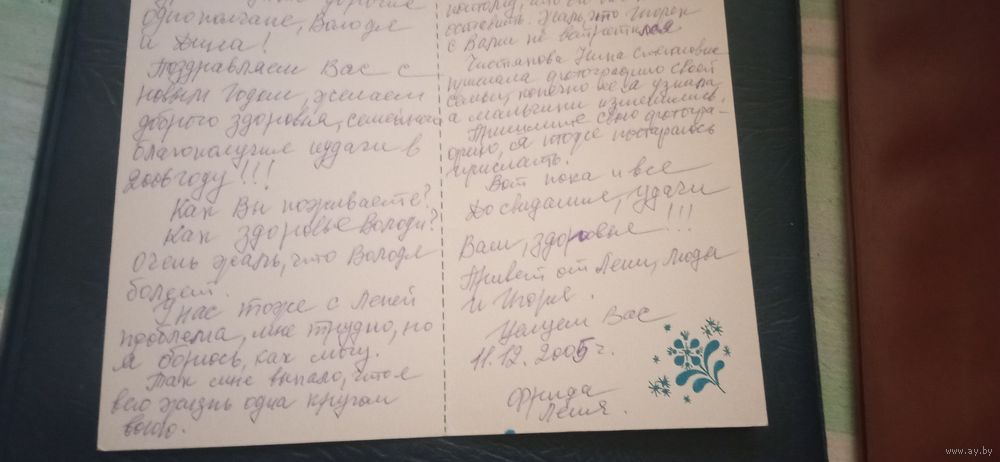 дорогие
однополчане, Володя
и Дина!
Поздравляем Вас с
новым годом, желаем
доброго здоровья, семейного
благополучия и удачи в
2006 году!!!
Как Вы поживаете?
Как здоровье Володи?
Очень жаль, что Володя
болеет.
У нас тоже с Леней
проблема, мне трудно, но
я борюсь, как могу.
Так мне выпало, что я
всю жизнь одна кругом
воюю.
оставить. Жаль, что Игорек
с Вами не встретился
Чистякова Нина Степановна
прислала фотографию своей
семьи, конечно все я узнала,
а мальчики изменились.
Пришлите свою фотогра-
фию, а я тоже постараюсь
прислать.
Вот пока и все
До свидания, удачи
Вам, здоровья!!!
Привет от Лени, Люды
и Игоря.
Целуем Вас
11.12.2005 г.
Фрида
Леня.
www.ay.by